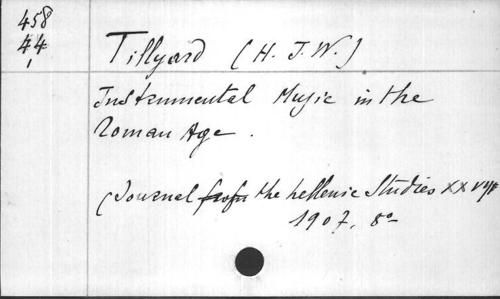 458
44
1
Tillyard (H. J. W.)
Instrumental Music in the
Roman Age.
(Journal the hellenic Studies
1907. 8°